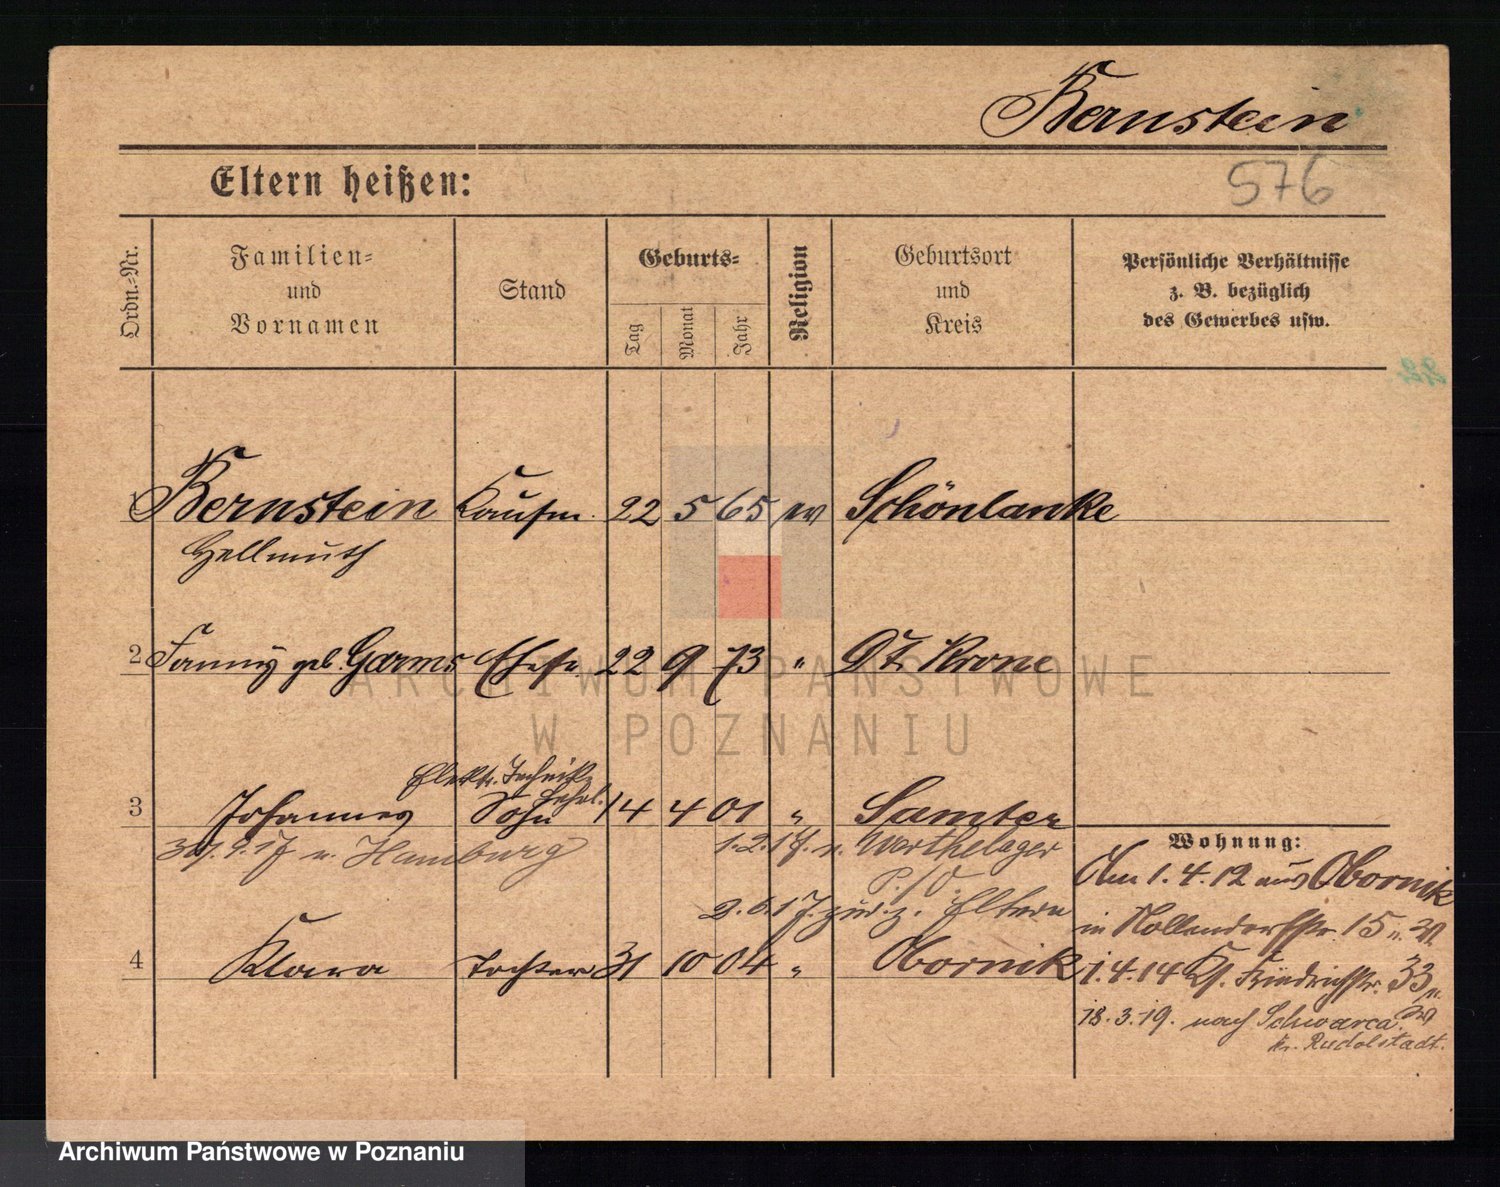 Bernstein
576
Eltern heißen:
Ordn.-Nr.
Familien- und Vornamen
Stand
Geburts-
Tag
Monat
Jahr
Religion
Geburtsort und Kreis
Persönliche Verhältnisse
z. B. bezüglich
des Gewerbes usw.
1 Bernstein Kaufm. 22 5 65 ev Schönlanke
Hellmuth
2 Fanny geb. Garms Ehefr. 22 9 73 " Dt. Krone
Elektr. Technik
3 Johannes Sohn 14 4 01 " Samter
n. Hamburg 1.2.17. n. Warthelager
2.6.17. zur. z. Eltern
4 Klara Tochter 31 10 04 " Obornik
Wohnung:
Am 1.4.12 aus Obornik
in Nollendorfstr. 15 n. W.
1.4.14 Ks. Friedrichstr. 33 n.
W
18.3.19. nach Schwarza
Kr. Rudolstadt.
ARCHIWUM PAŃSTWOWE
W POZNANIU
Archiwum Państwowe w Poznaniu